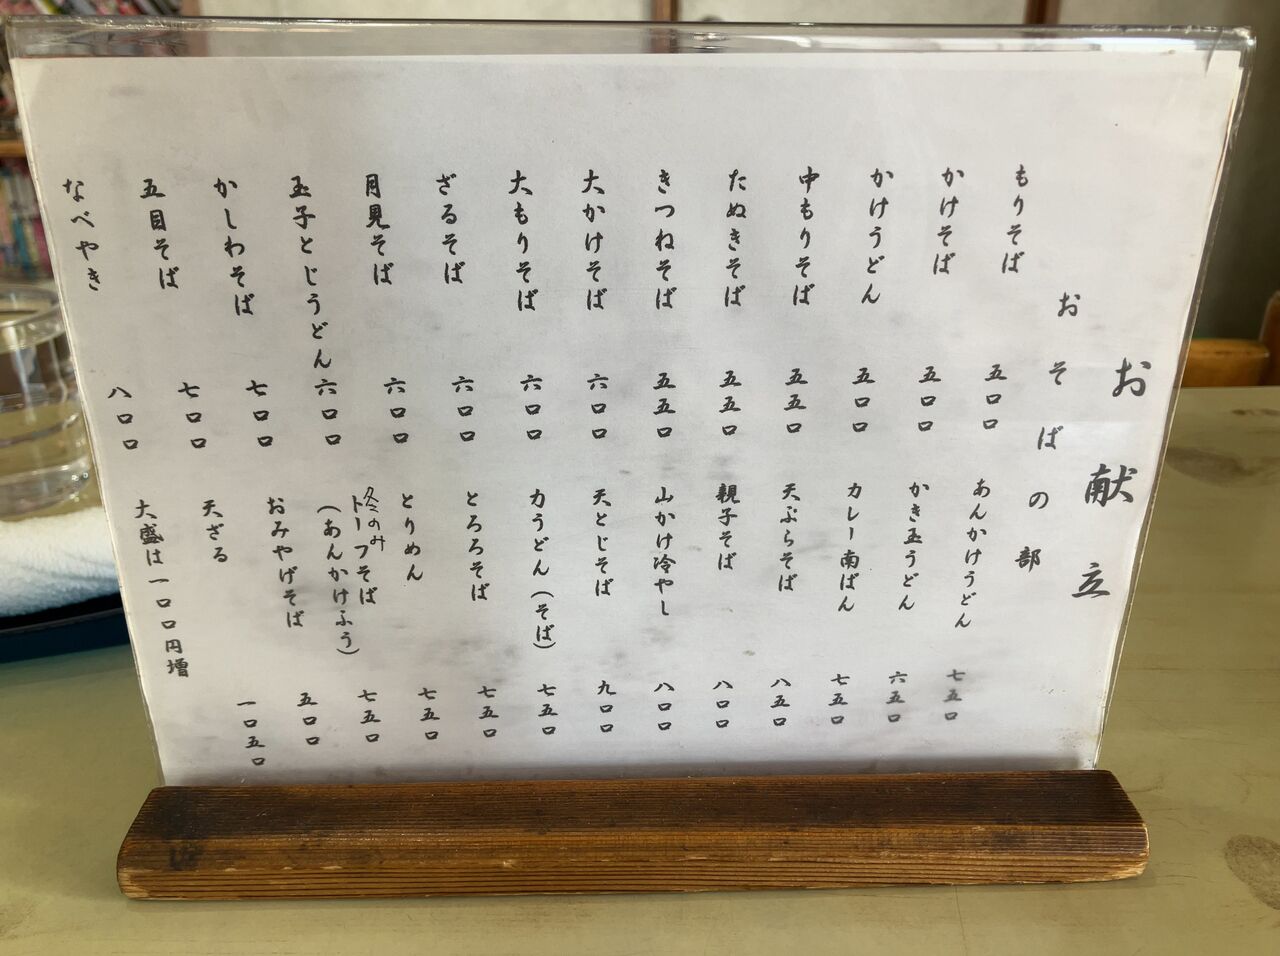 お献立
おそばの部
もりそば 五〇〇
かけそば 五〇〇
かけうどん 五〇〇
中もりそば 五五〇
たぬきそば 五五〇
きつねそば 五五〇
大かけそば 六〇〇
大もりそば 六〇〇
ざるそば 六〇〇
月見そば 六〇〇
玉子とじうどん 六〇〇
かしわそば 七〇〇
五目そば 七〇〇
なべやき 八〇〇
あんかけうどん 七五〇
かき玉うどん 六五〇
カレー南ばん 七五〇
天ぷらそば 八五〇
親子そば 八〇〇
山かけ冷やし 八〇〇
天とじそば 九〇〇
力うどん(そば) 七五〇
とろろそば 七五〇
とりめん 七五〇
冬のみ
トーフそば 七五〇
(あんかけふう)
おみやげそば 五〇〇
天ざる 一〇五〇
大盛は一〇〇円増